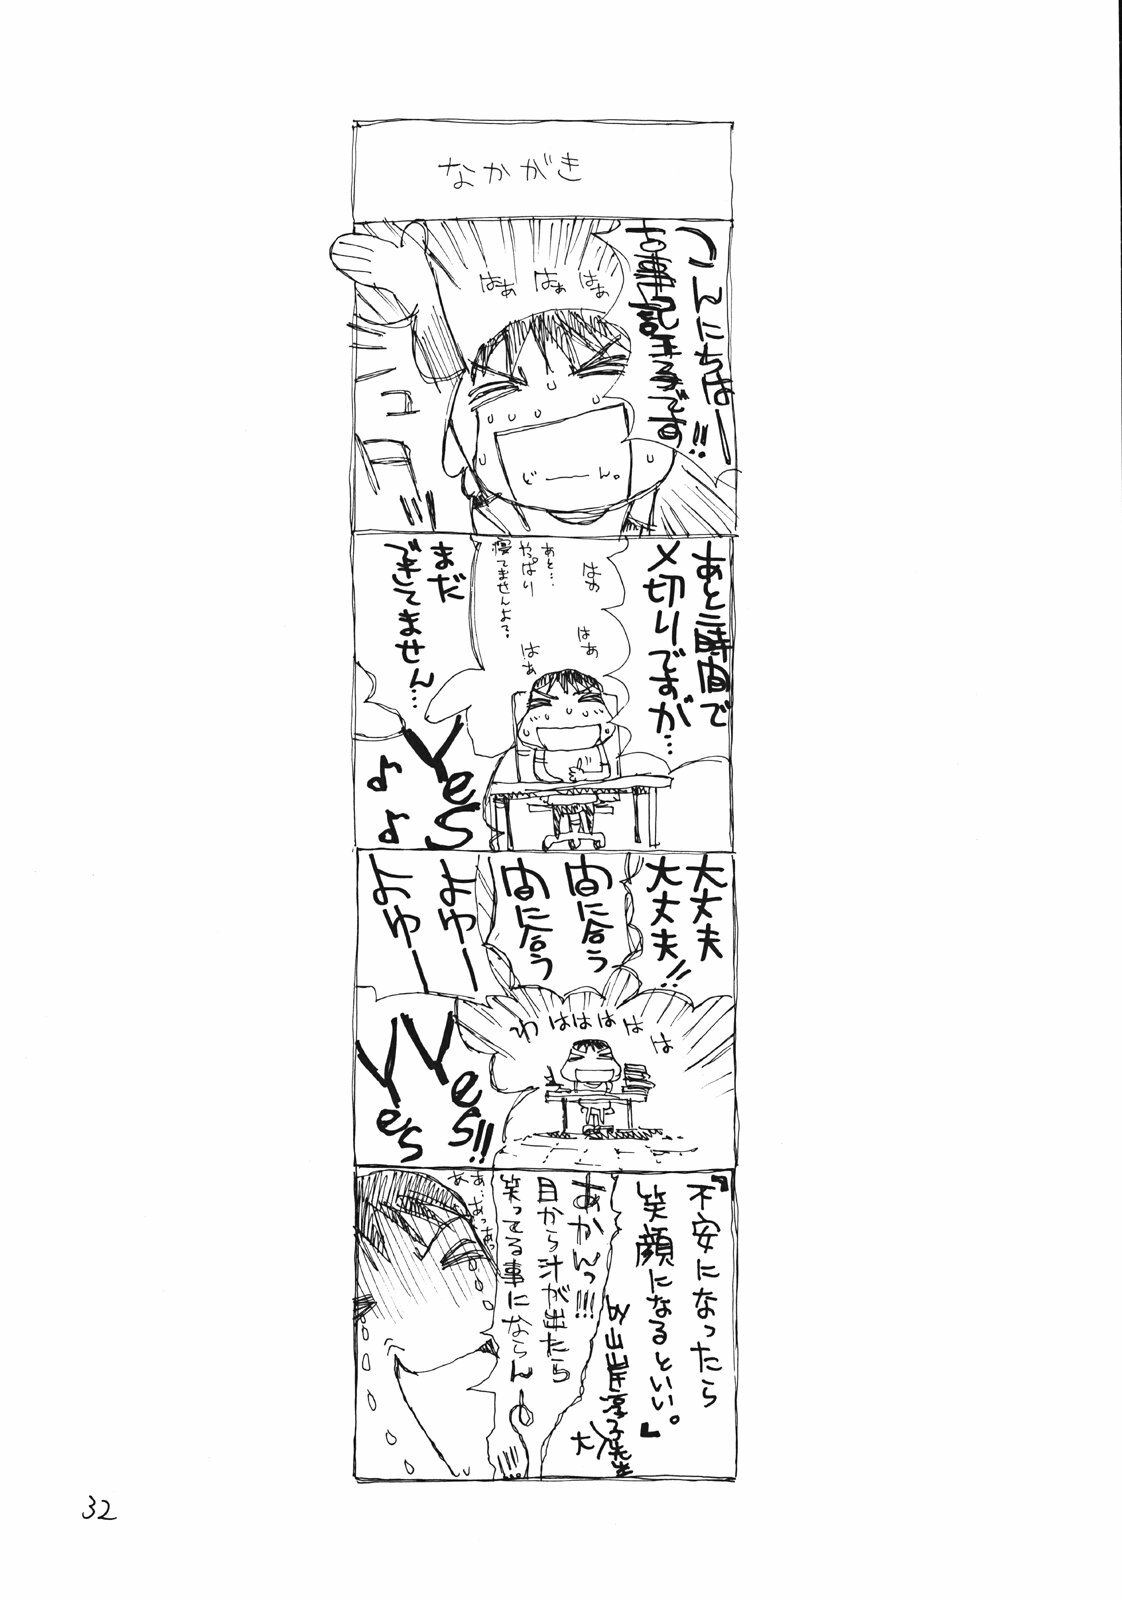 なかがき
こんにちはー!!
はぁ はぁ はぁ
じーん。
あと三時間で
〆切りですが…
はぁ
はぁ
はぁ
あと…
やっぱり
寝てませんよ?
まだ
できてません…
Yes
♪♪
大丈夫
大丈夫!!
間に合う
間に合う
よゆー
よゆー
わはははは
Yes!!
Yes
『不安になったら
笑顔になるといい。』
by山岸涼子先生
あかんっ!!!
目から汁が出たら
笑ってる事にならんー
32